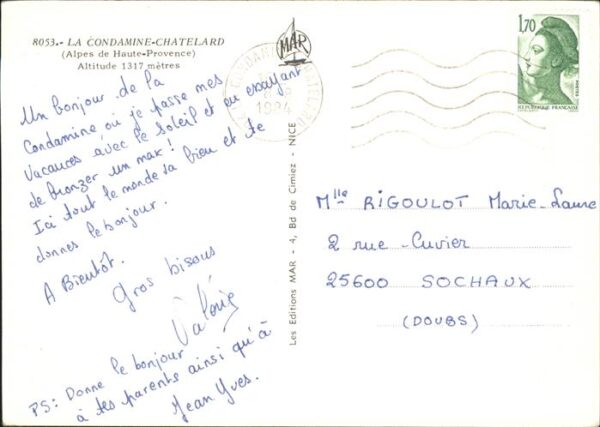 8053.- LA CONDAMINE-CHATELARD
(Alpes de Haute-Provence)
Altitude 1317 mètres
MAR
1984
1,70
REPUBLIQUE FRANÇAISE
Un bonjour de la
Condamine, où je passe mes
vacances avec le soleil et en essayant
de bronzer un max!
Ici tout le monde va bien et te
donnes le bonjour.
A Bientôt.
Gros bisous
Valérie
PS: Donne le bonjour
à tes parents ainsi qu'à
Jean Yves.
Les Editions MAR - 4, Bd de Cimiez - NICE
Mlle RIGOULOT Marie-Laure
2 rue Cuvier
25600 SOCHAUX
(DOUBS)